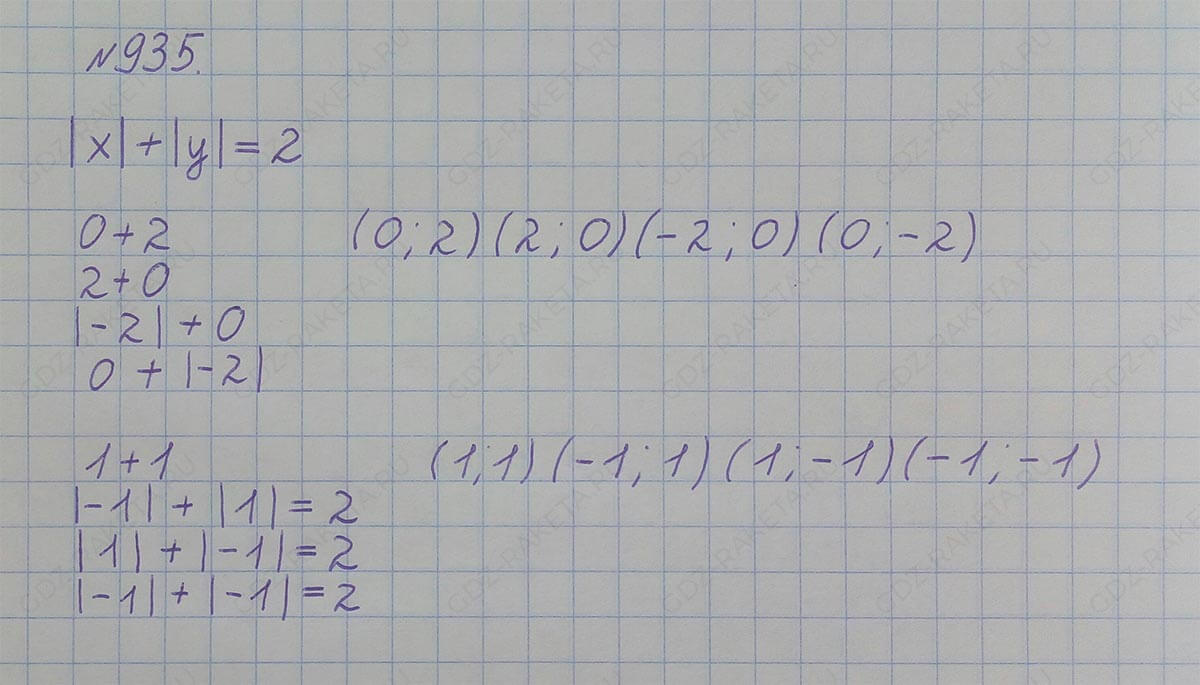 №935.
|x|+|y|=2
0+2 (0;2) (2;0) (-2;0) (0;-2)
2+0
|-2| + 0
0 + |-2|
1+1 (1;1) (-1;1) (1;-1) (-1;-1)
|-1| + |1| = 2
|1| + |-1| = 2
|-1| + |-1| = 2
GDZ-RAKETA.RU